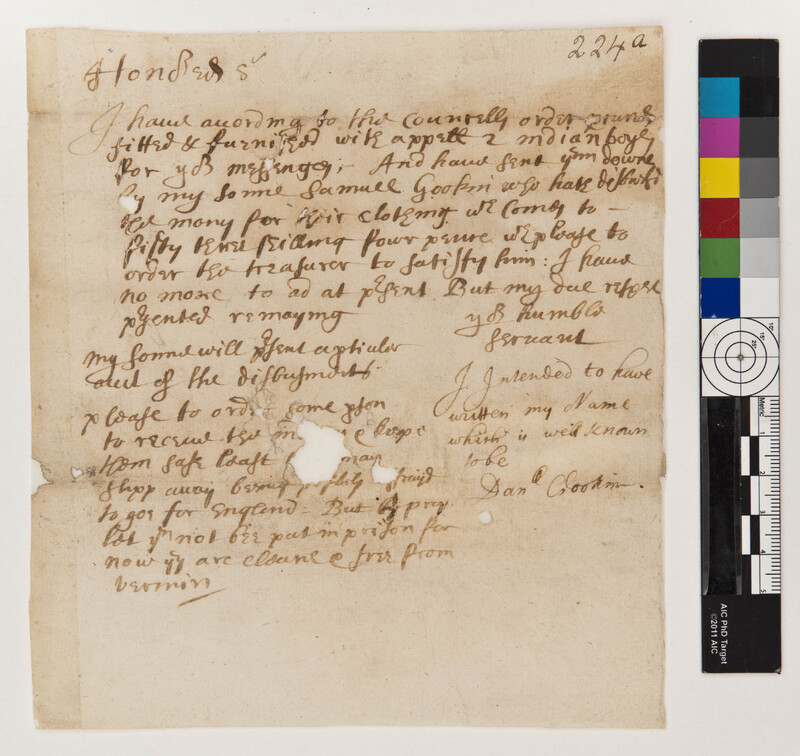 224a
Honored Sr
I have according to the Councells order
fitted & furnished with appell 2 indian boyes
for yor messengr; And have sent ym downe
by my sonne Samuell Gookin who hath disbursd
the mony for their clothing wch comes to -
fifty three shilling fowr pence wch please to
order the treasurer to satisfy him: I have
no more to ad at psent But my due respec
psented remayning
yor humble
servant
my sonne will psent a pticular
acct of the disbusments
please to order some pson
to receive them & keepe
them safe least may
slipp away being afraid
to goe for England - But I pray
let ym not bee put in prison for
now yy are cleane & free from
vermin
I Intended to have
written my Name
which is well known
to be
Danll Gookin.
Metric
1
2
3
4
5
AIC PhD Target
©2011 AIC